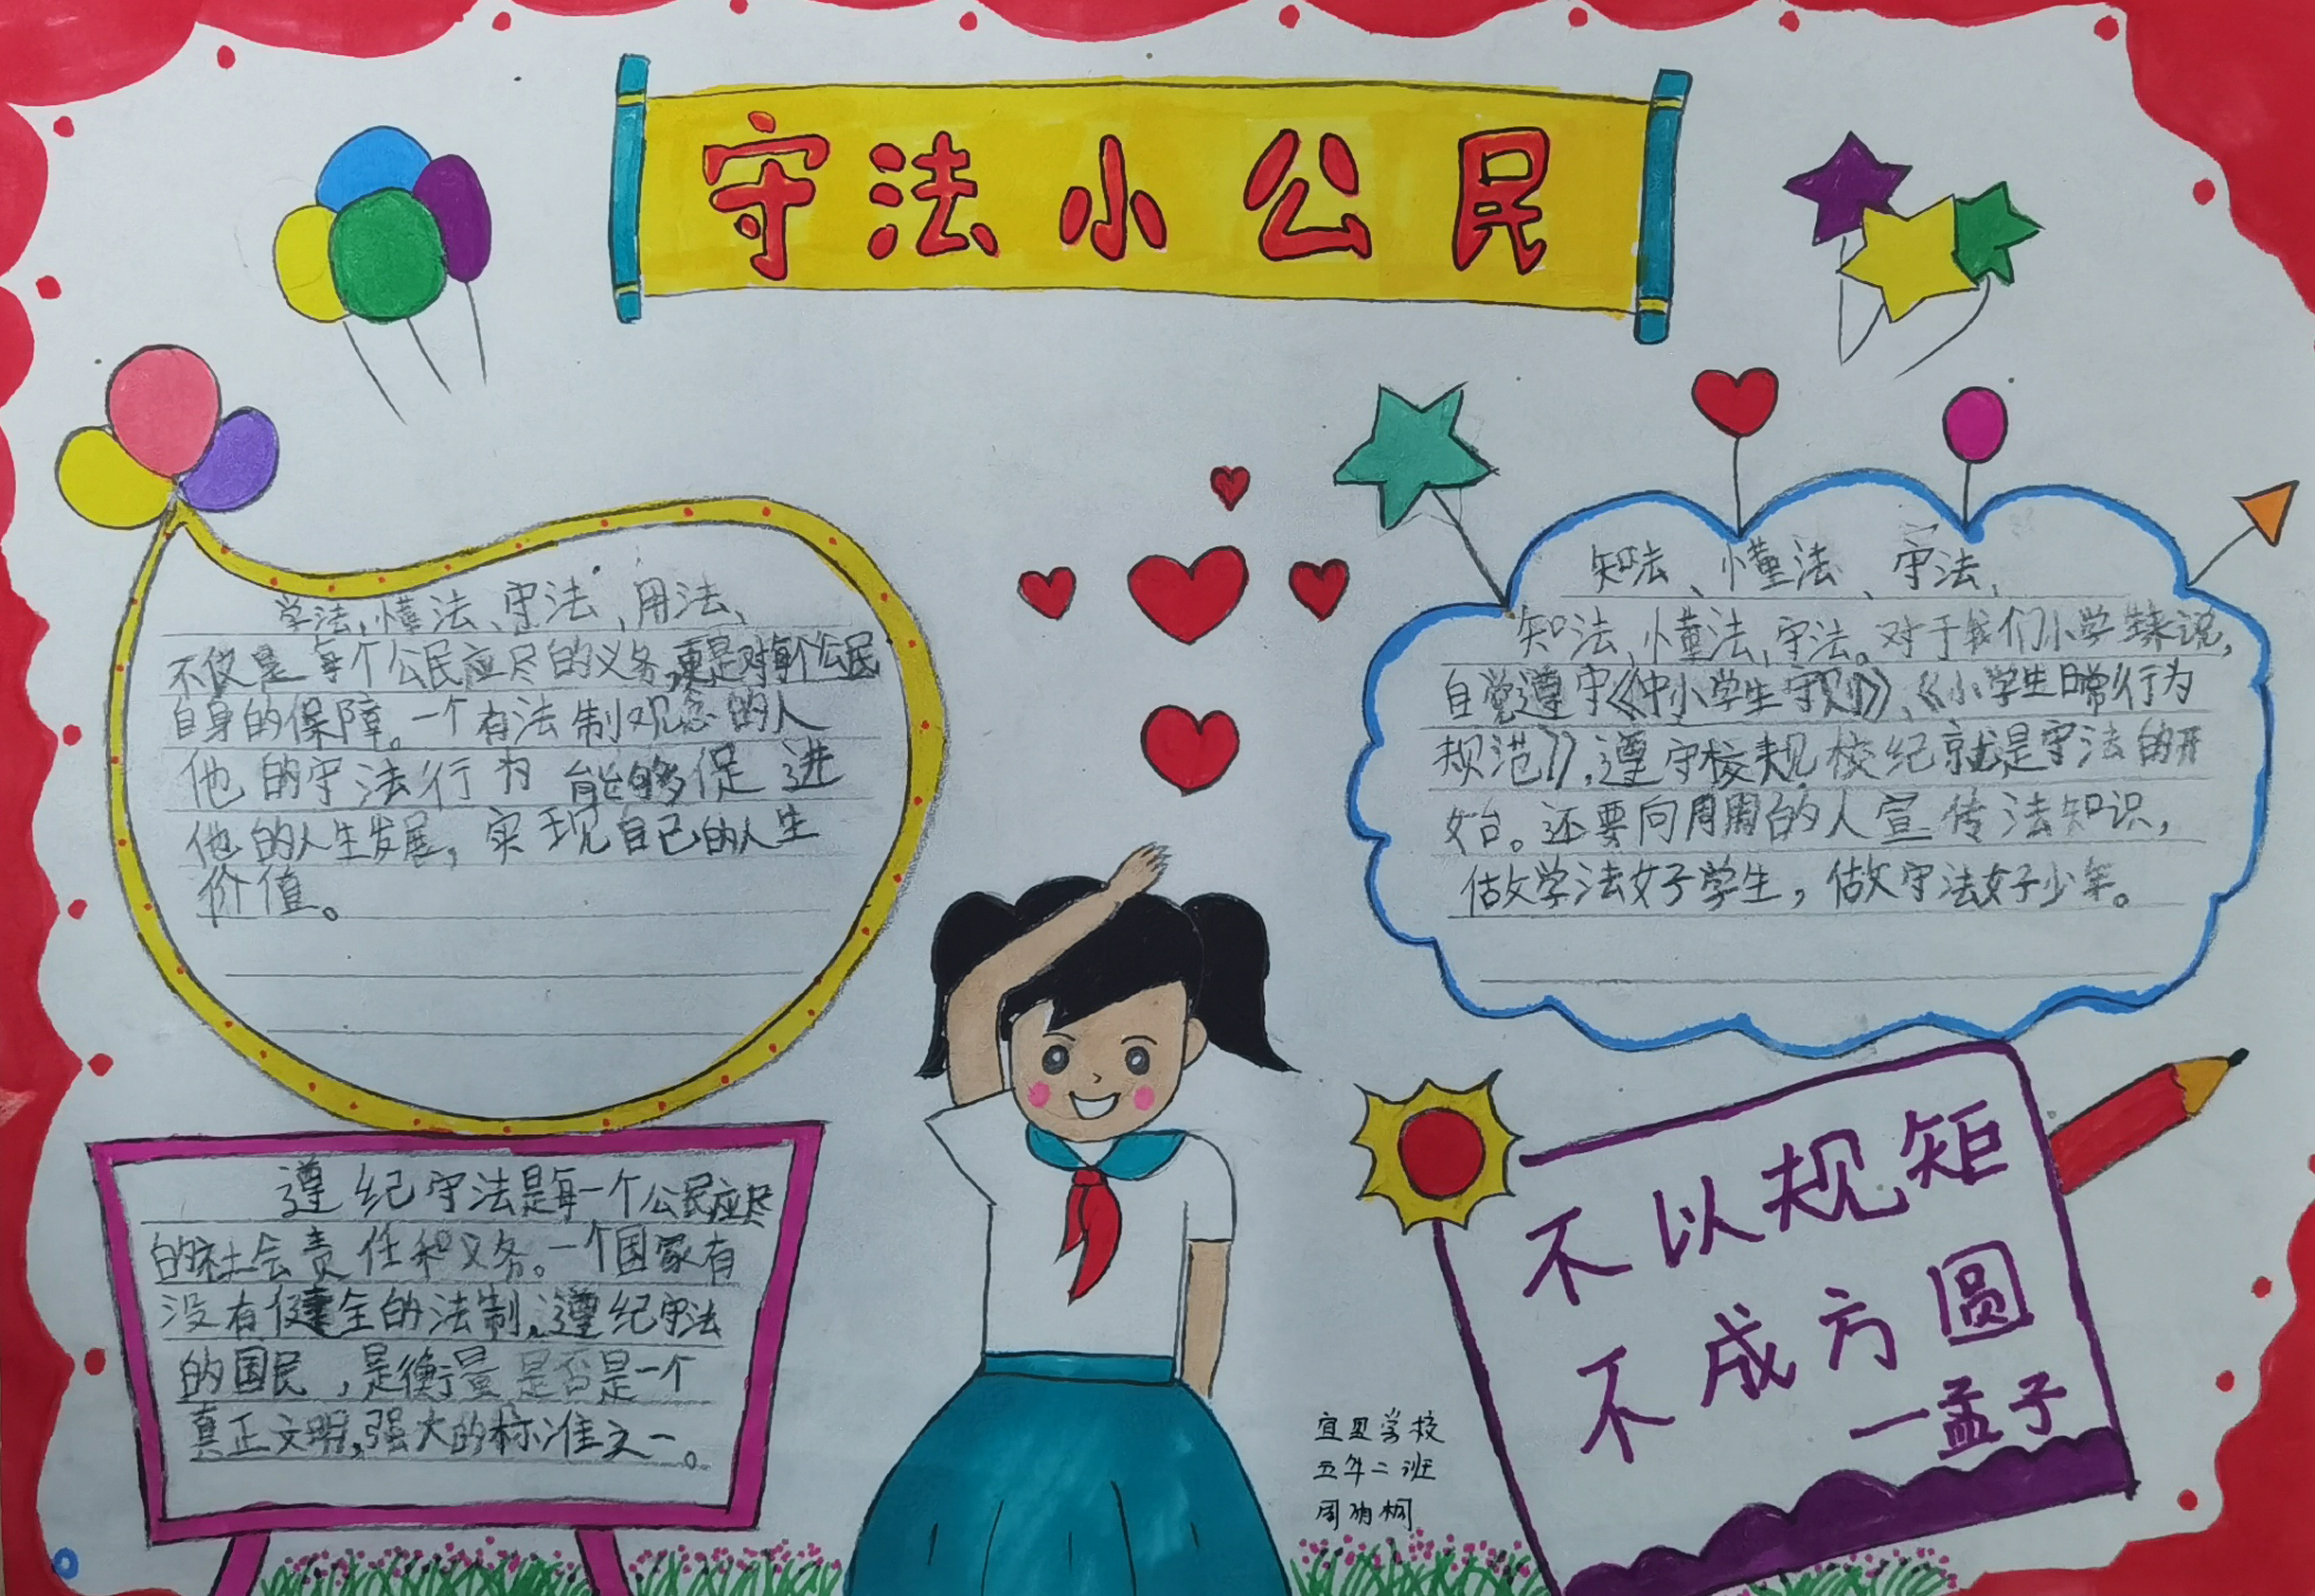 守法小公民
学法、懂法、守法、用法、
不仅是每个公民应尽的义务,更是对每个公民
自身的保障。一个有法制观念的人
他的守法行为能够促进
他的人生发展,实现自己的人生
价值。
知法、懂法、守法、
知法、懂法、守法。对于我们小学生来说,
自觉遵守《中小学生守则》、《小学生日常行为
规范》,遵守校规校纪就是守法的开
始。还要向周围的人宣传法知识,
做学法好子学生,做守法好子少年。
遵纪守法是每一个公民应尽
的社会责任和义务。一个国家有
没有健全的法制,遵纪守法
的国民,是衡量是否是一个
真正文明,强大的标准之一。
不以规矩
不成方圆
一孟子
宜里学校
五年二班